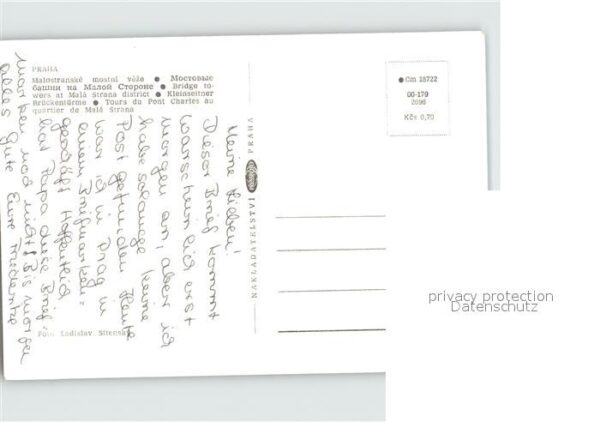 PRAHA
Malostranské mostní věže ● Мостовые
башни на Малой Стороне ● Bridge to-
wers at Malá Strana district ● Kleinseitner
Brückentürme ● Tours du Pont Charles au
quartier de Malá Strana
Meine Lieben!
Dieser Brief kommt
warscheinlich erst
Morgen an, aber ich
habe solange keine
Post gefunden. Heute
war ich in Prag in
einem Briefmarken-
geschäft Hoffentlich
hat Papa diese Brief-
marken noch nicht! Bis morgen
alles gute Eure
Foto Ladislav Sitenský
NAKLADATELSTVÍ PRAHA
● Cm 18722
00-179
2096
Kčs 0,70
privacy protection
Datenschutz